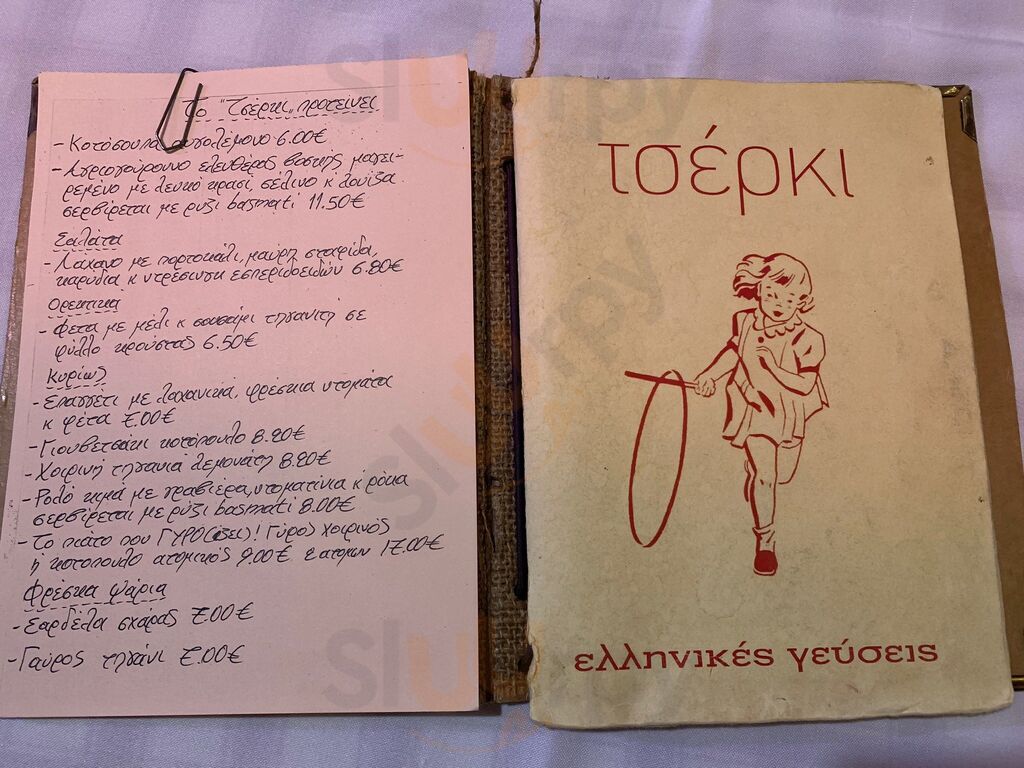 Το "Τσέρκι" προτείνει
- Κοτόσουπα αυγολέμονο 6.00€
- Αγριογούρουνο ελευθέρας βοσκής μαγει-
ρεμένο με λευκό κρασί, σέλινο κ λουίζα
σερβίρεται με ρύζι basmati 11.50€
Σαλάτα
- Λάχανο με πορτοκάλι, μαύρη σταφίδα,
καρύδια κ ντρέσινγκ εσπεριδοειδών 6.80€
Ορεκτικά
- Φέτα με μέλι κ σουσάμι τηγανιτή σε
φύλλο κρούστας 6.50€
Κυρίως
- Σπαγγέτι με λαχανικά, φρέσκια ντομάτα
κ φέτα 7.00€
- Γιουβετσάκι κοτόπουλο 8.80€
- Χοιρινή τηγανιά λεμονάτη 8.80€
- Ρολό κιμά με γραβιέρα, ντοματίνια κ ρόκα
σερβίρεται με ρύζι basmati 8.00€
- Το πιάτο που ΓΥΡΟ(ίζει)! Γύρος χοιρινός
ή κοτόπουλο ατομικός 9.00€ 2 ατόμων 17.00€
Φρέσκα ψάρια
- Σαρδέλα σχάρας 7.00€
- Γαύρος τηγάνι 7.00€
τσέρκι
ελληνικές γεύσεις
sluurpy
sluurpy
sluurpy
sluurpy